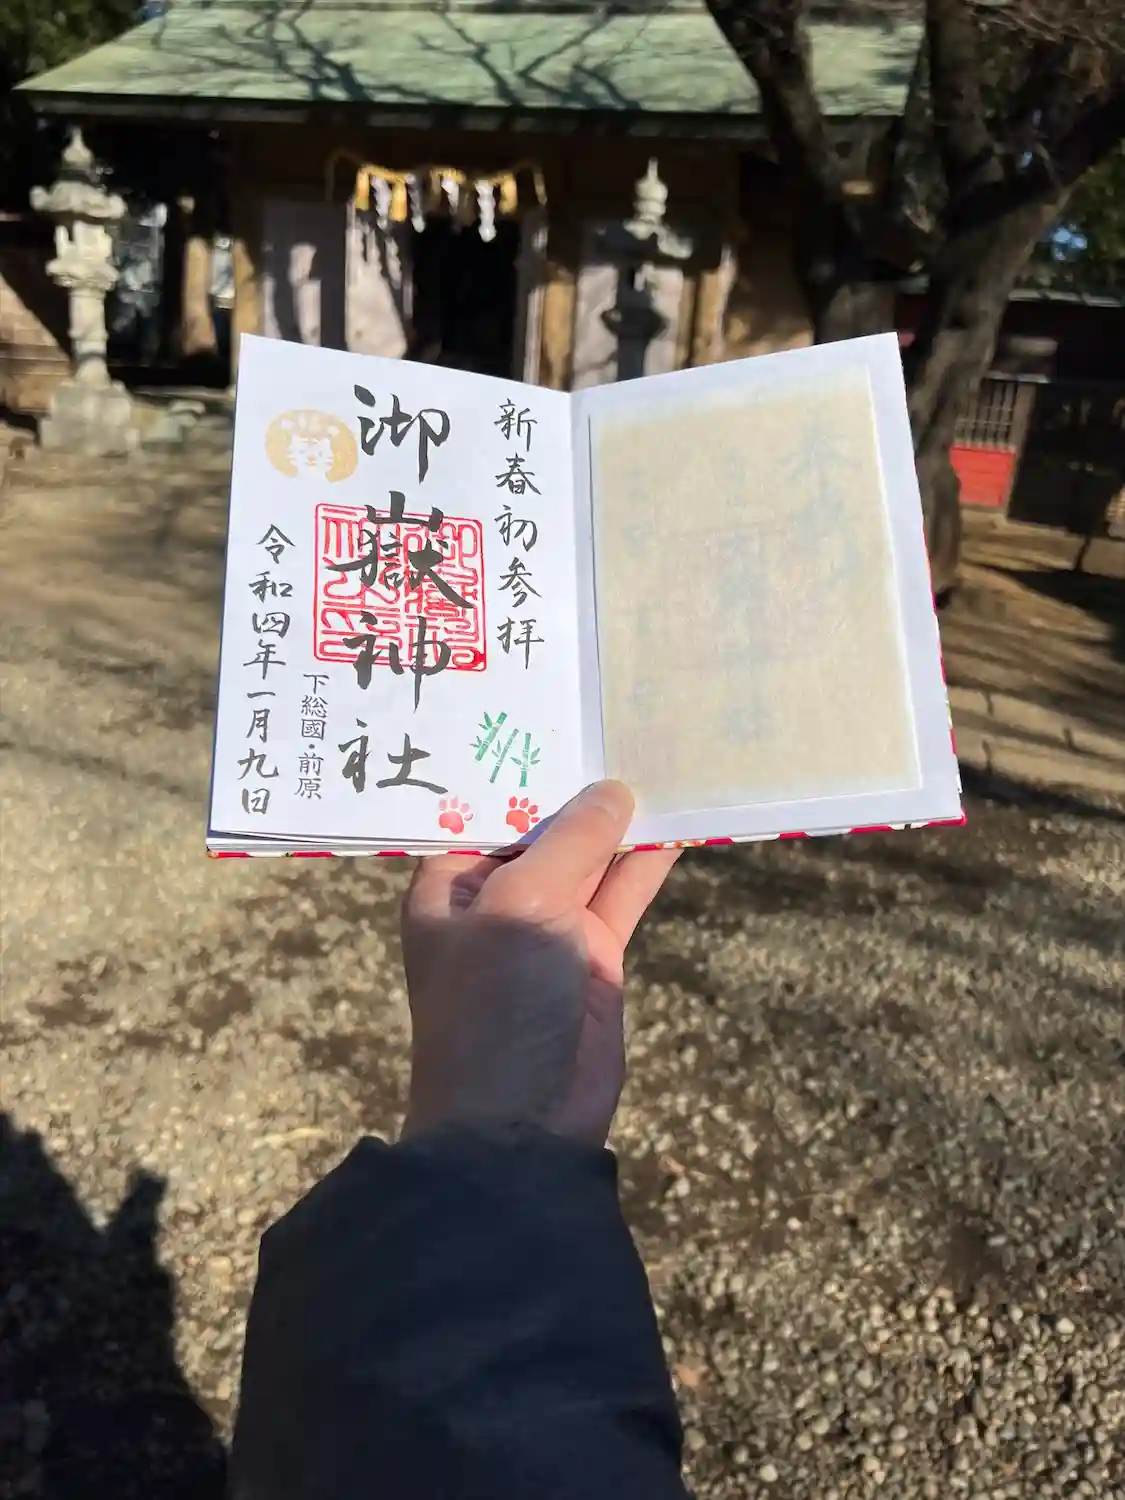 新春初参拝
御嶽神社
下総國・前原
令和四年一月九日